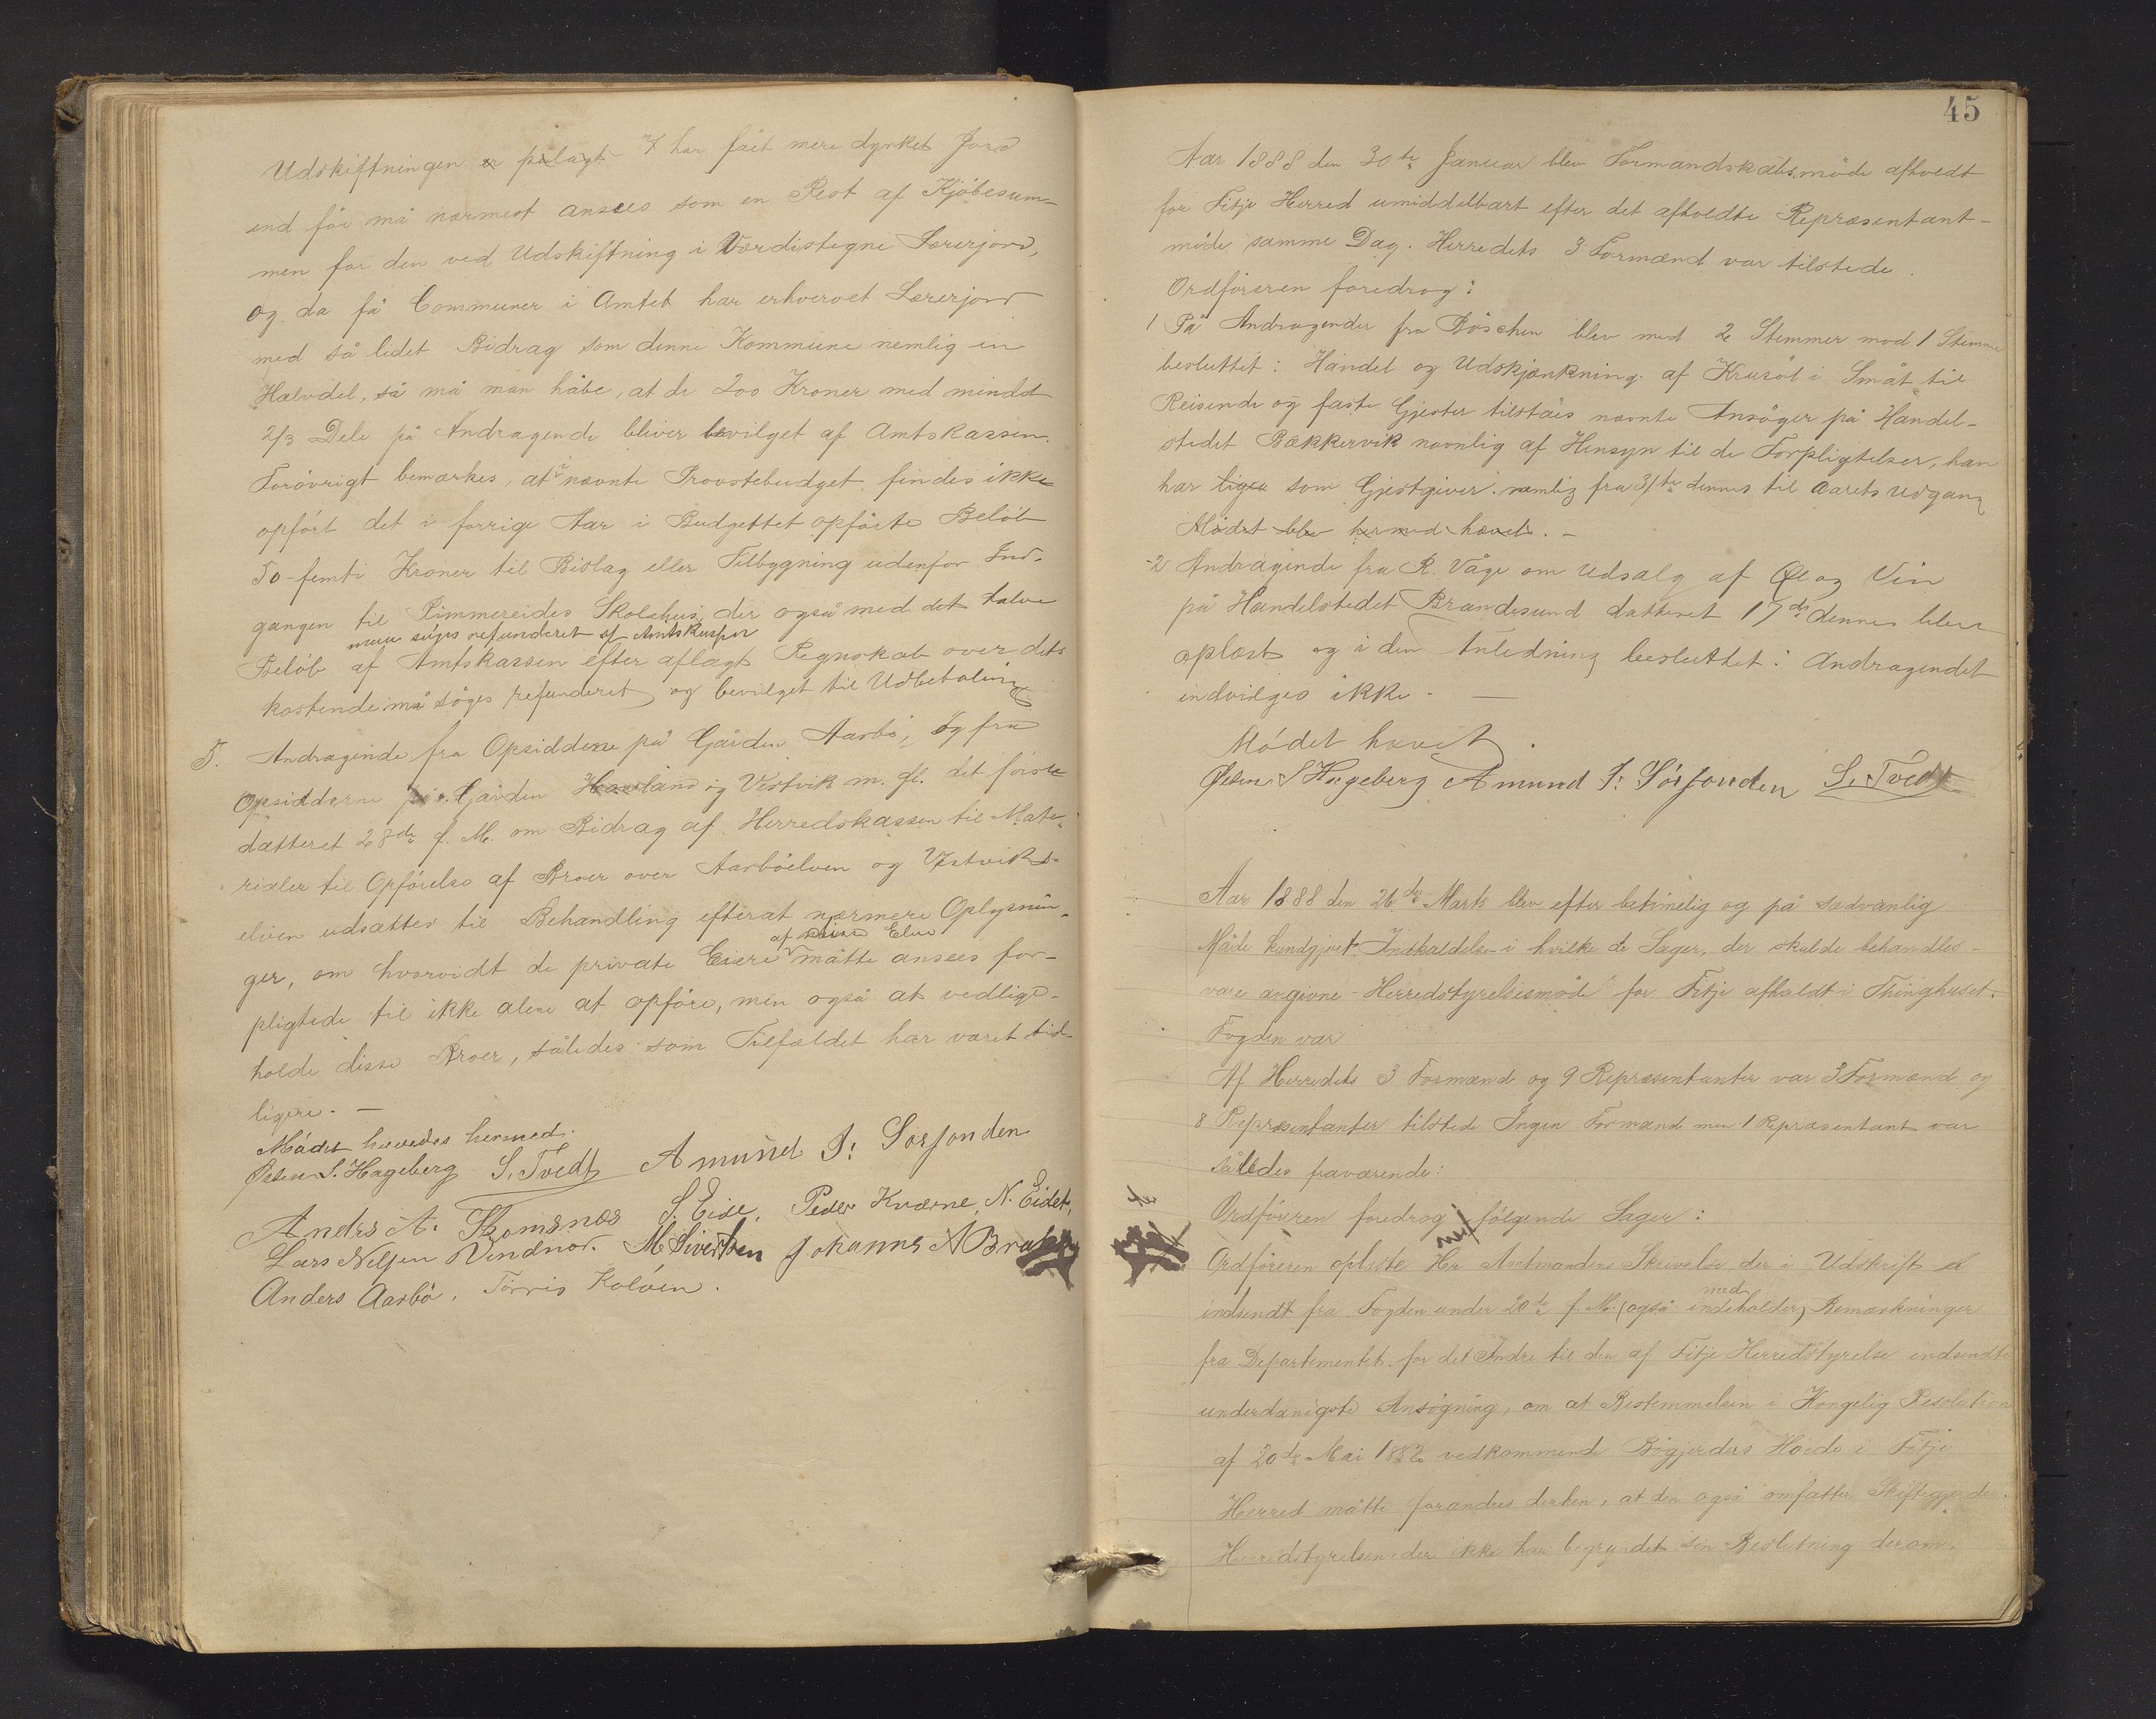 Udskiftningen er pålagt har fået mere dyrket Jord
end för må nærmest ansees som en Rest af Kjöbesum-
men for den ved Udskiftning i Værdistegne Lærerjord,
og da få Communer i Amtet har erhvervet Lærerjord
med så lidet Bidrag som denne Kommune nemlig en
Halvdel, så må man håbe, at de 200 Kroner med mindst
2/3 Dele på Andragende bliver bevilget af Amtskassen.
Forövrigt bemærkes, at i nævnte Provstebudget findes ikke
opfört det i forrige Aar i Budgettet opförte Belöb
50-femti Kroner til Bislag eller Tilbygning udenfor Ind-
gangen til Rimmereides Skolehus, der også med det halve
maa söges refunderet af Amtskassen
Belöb af Amtskassen efter aflagt Regnskab over dets
kostende må söges refunderet og bevilget til Udbetaling
5. Andragende fra Opsiddene på Gården Aarbö, og fra
Opsidderne på Gården Havland og Vestvik m. fl. det förste
datteret 28de f. M. om Bidrag af Herredskassen til Mate-
rialer til Opförelse af Broer over Aarböelven og Vestviks-
elven udsattes til Behandling efterat nærmere Oplysnin-
af disse Elve
ger, om hvorvidt de private Eiere måtte ansees for-
pligtede til ikke alene at opföre, men også at vedlige-
holde disse Broer, således som Tilfældet har været tid-
ligere. —
Mödet hævedes hermed.
Østen S. Hageberg S. Tvedt Amund J: Sörfonden
Anders A. Thomsnæs S. Eide, Peder Kværne, N. Eidet,
Lars Nelsen Vindnæs. M Sivertsen Johannes N Brakk
Anders Aarbö. Törris Kolöen.
45
Aar 1888 den 30te Januar blev Formandskabsmöde afholdt
for Fitje Herred umiddelbart efter det afholdte Repræsentant-
möde samme Dag. Herredets 3 Formænd var tilstede.
Ordföreren foredrog:
1 På Andragende fra Böschen blev med 2 Stemmer mod 1 Stemme
besluttet: Handel og Udskjænkning af Krusöl i Småt til
Reisende og faste Gjester tilståes nævnte Ansöger på Handel-
stedet Bækkervik navnlig af Hensyn til de Forpligtelser, han
har ligeu som Gjestgiver. nemlig fra 31te dennes til Aarets Udgang
Mödet blev hermed hævet. —
2 Andragende fra R. Våge om Udsalg af Öl og Vin
på Handelstedet Brandesund datteret 17de dennes blev
oplæst og i den Anledning besluttet: Andragendet
indvilges ikke. —
Mödet hævet.
Østen S Hageberg Amund J: Sörfonden S. Tvedt
Aar 1888 den 26de Marts blev efter betimelig og på sædvanlig
Måde kundgjort Indkaldelse - i hvilke de Sager, der skulde behandles -
vare angivne - Herredstyrelsesmöde for Fitje afholdt i Thinghuset.
Fogden var
Af Herredets 3 Formænd og 9 Repræsentanter var 3 Formænd og
8 Repræsentanter tilstede Ingen Formand men 1 Repræsentant var
således fraværende:
Ordföreren foredrog følgende Sager:
Ordföreren oplæste Hr Amtmandens Skrivelse, der i Udskrift er
med
indsendt fra Fogden under 20de f. M. (også indeholder) Bemærkninger
fra Departementet for det Indre til den af Fitje Herredstyrelse indsendte
underdanigste Ansögning, om at Bestemmelsen i Kongelig Resolution
af 20de Mai 1882 vedkommende Bögjerders Höide i Fitje
Herred måtte forandres derhen, at den også omfatter Skiftegjerder.
Herredstyrelsen der ikke har begrundet sin Beslutning derom.